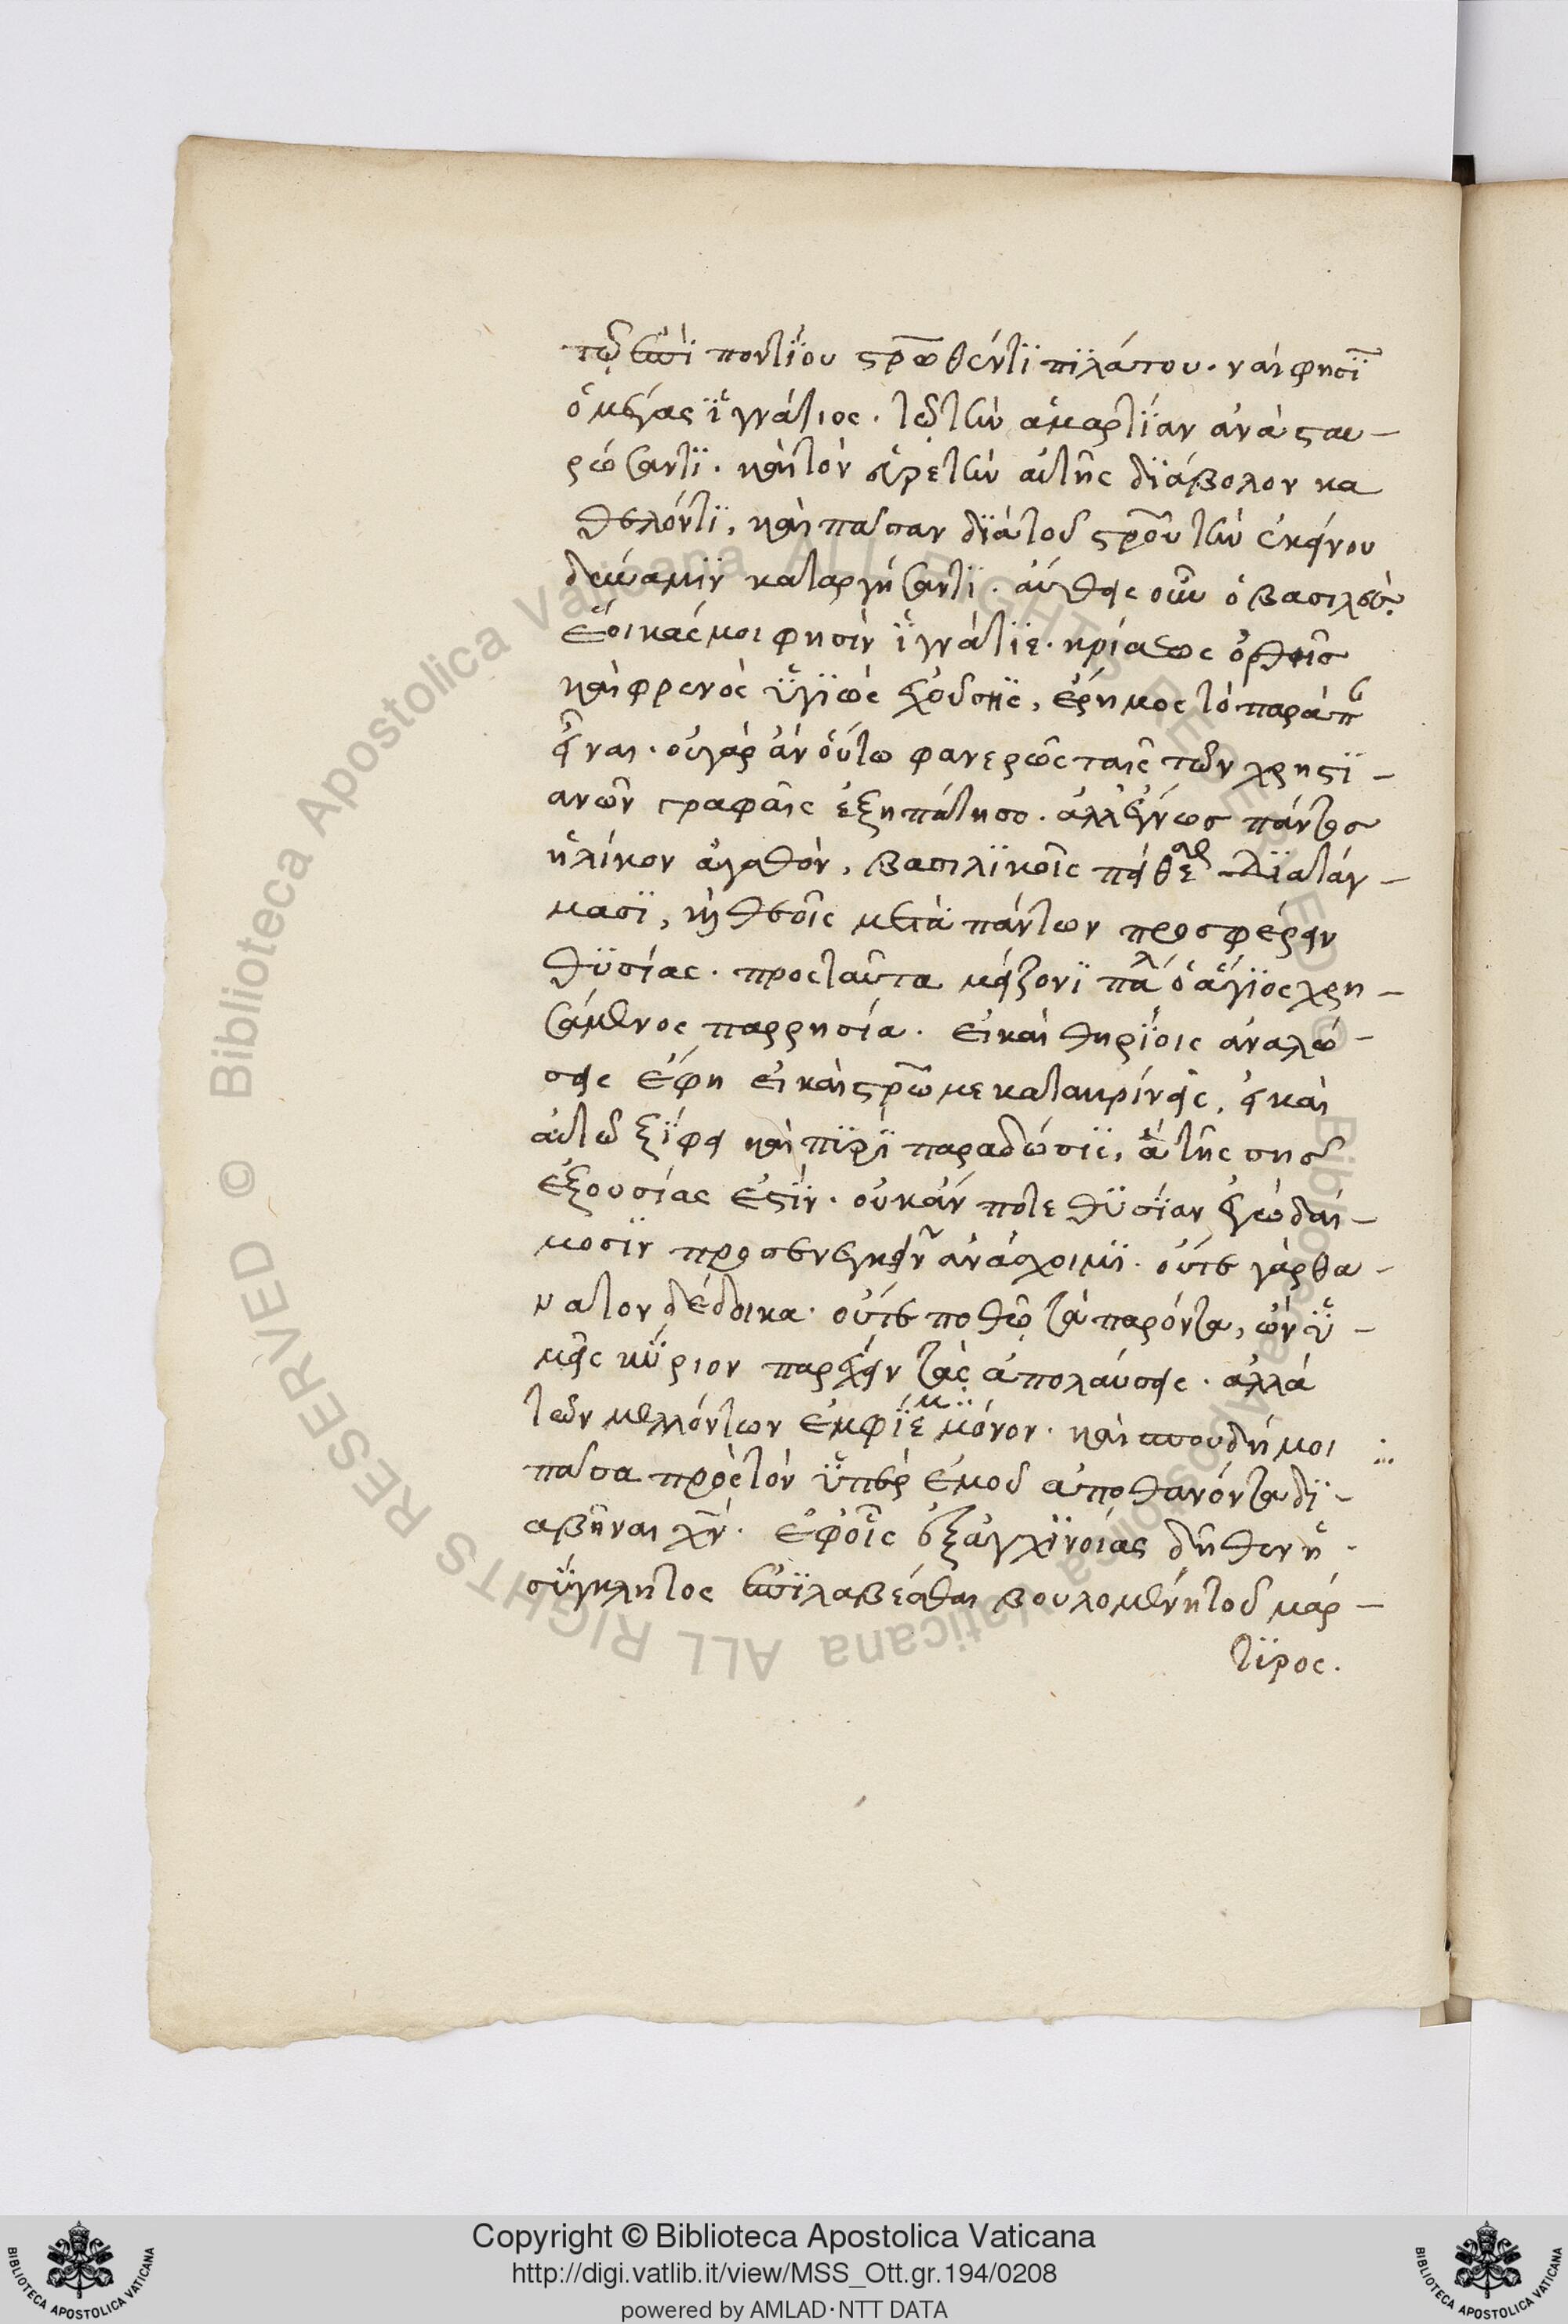 τῷ ἐπὶ ποντίου στρωθέντι πιλάτου. ναὶ φησὶ
ὁ μέγας ἰγνάτιος. τῷ τὴν ἁμαρτίαν ἀνασταυ-
ρώσαντι. καὶ τὸν εὑρετὴν αὐτῆς διάβολον κα
θελόντι, καὶ πᾶσαν διὰ τοῦ στροῦ τὴν ἐκείνου
δύναμιν καταργήσαντι. αὖθις οὖν ὁ βασιλεὺς
ἔοικάς μοι φησὶν ἰγνάτιε. κρίσεως ὀρθῆς
καὶ φρενὸς ὑγιῶς ἐχούσης, ἔρημος τὸ παράπ
εἶναι. οὐ γὰρ ἂν οὕτω φανερῶς ταῖς τῶν χρηστι-
ανῶν γραφαῖς ἐξηπάτησο. ἀλλ' ἔγνως πάντως
ἡλίκον ἀγαθόν, βασιλικοῖς πείθεσθαι διατάγ-
μασι, καὶ θεοῖς μετὰ πάντων προσφέρειν
θυσίας. πρὸς ταῦτα μείζονι παλ ὁ ἅγιος χρη-
σάμενος παρρησία. εἰ καὶ θηρίοις ἀναλώ-
σεις ἔφη εἰ καὶ στρῶ με κατακρίνεις, εἰ καὶ
αὐτῶ ξίφει καὶ πυρὶ παραδώσεις, ἃ τῆς σῆς
ἐξουσίας ἐστὶν. οὐκ ἄν ποτε θυσίαν ἐγὼ δαί-
μοσιν προσενεγκεῖν ἀνάσχοιμι. οὔτε γὰρ θά-
νατον δέδοικα. οὔτε ποθῶ τὰ παρόντα, ὧν ὑ-
μεῖς κύριον παρέχειν τὰς ἀπολαύσεις. ἀλλὰ
τῶν μελλόντων ἐμφίεμι μόνον. καὶ σπουδή μοι
πᾶσα πρὸς τὸν ὑπὲρ ἐμοῦ ἀποθανόντα δι-
αβῆναι χν. ἐφ' οἷς ἐξ ἀγχινοίας δῆθεν ἡ
σύγκλητος ἐπιλαβέσθαι βουλομένη τοῦ μάρ-
τυρος.
Copyright © Biblioteca Apostolica Vaticana
http://digi.vatlib.it/view/MSS_Ott.gr.194/0208
powered by AMLAD·NTT DATA